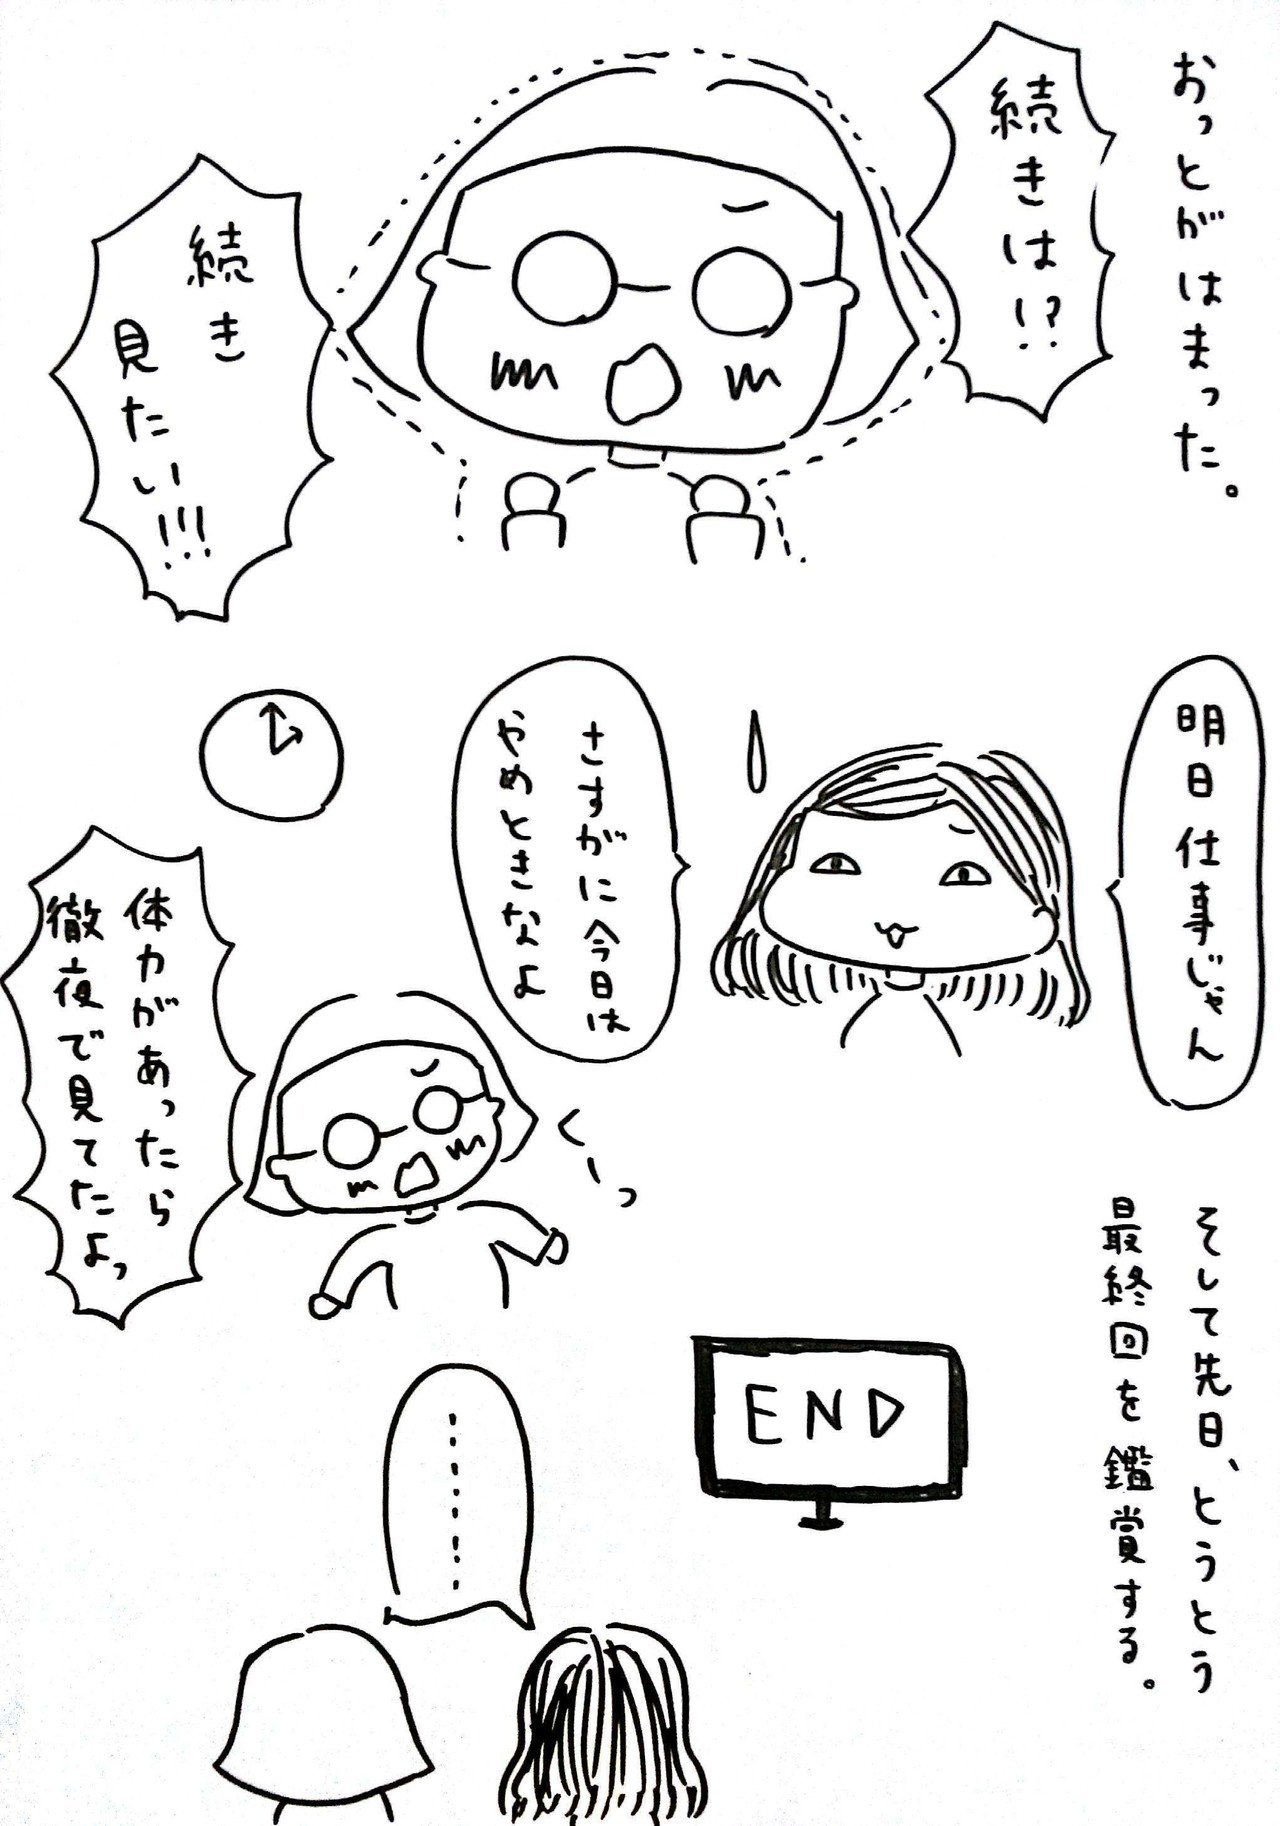 おっとがはまった。
続きは!?
続き
見たい!!!
明日仕事じゃん
さすがに今日は
やめときなよ
くーっ
体力があったら
徹夜で見てたよっ
そして先日、とうとう
最終回を鑑賞する。
END
………